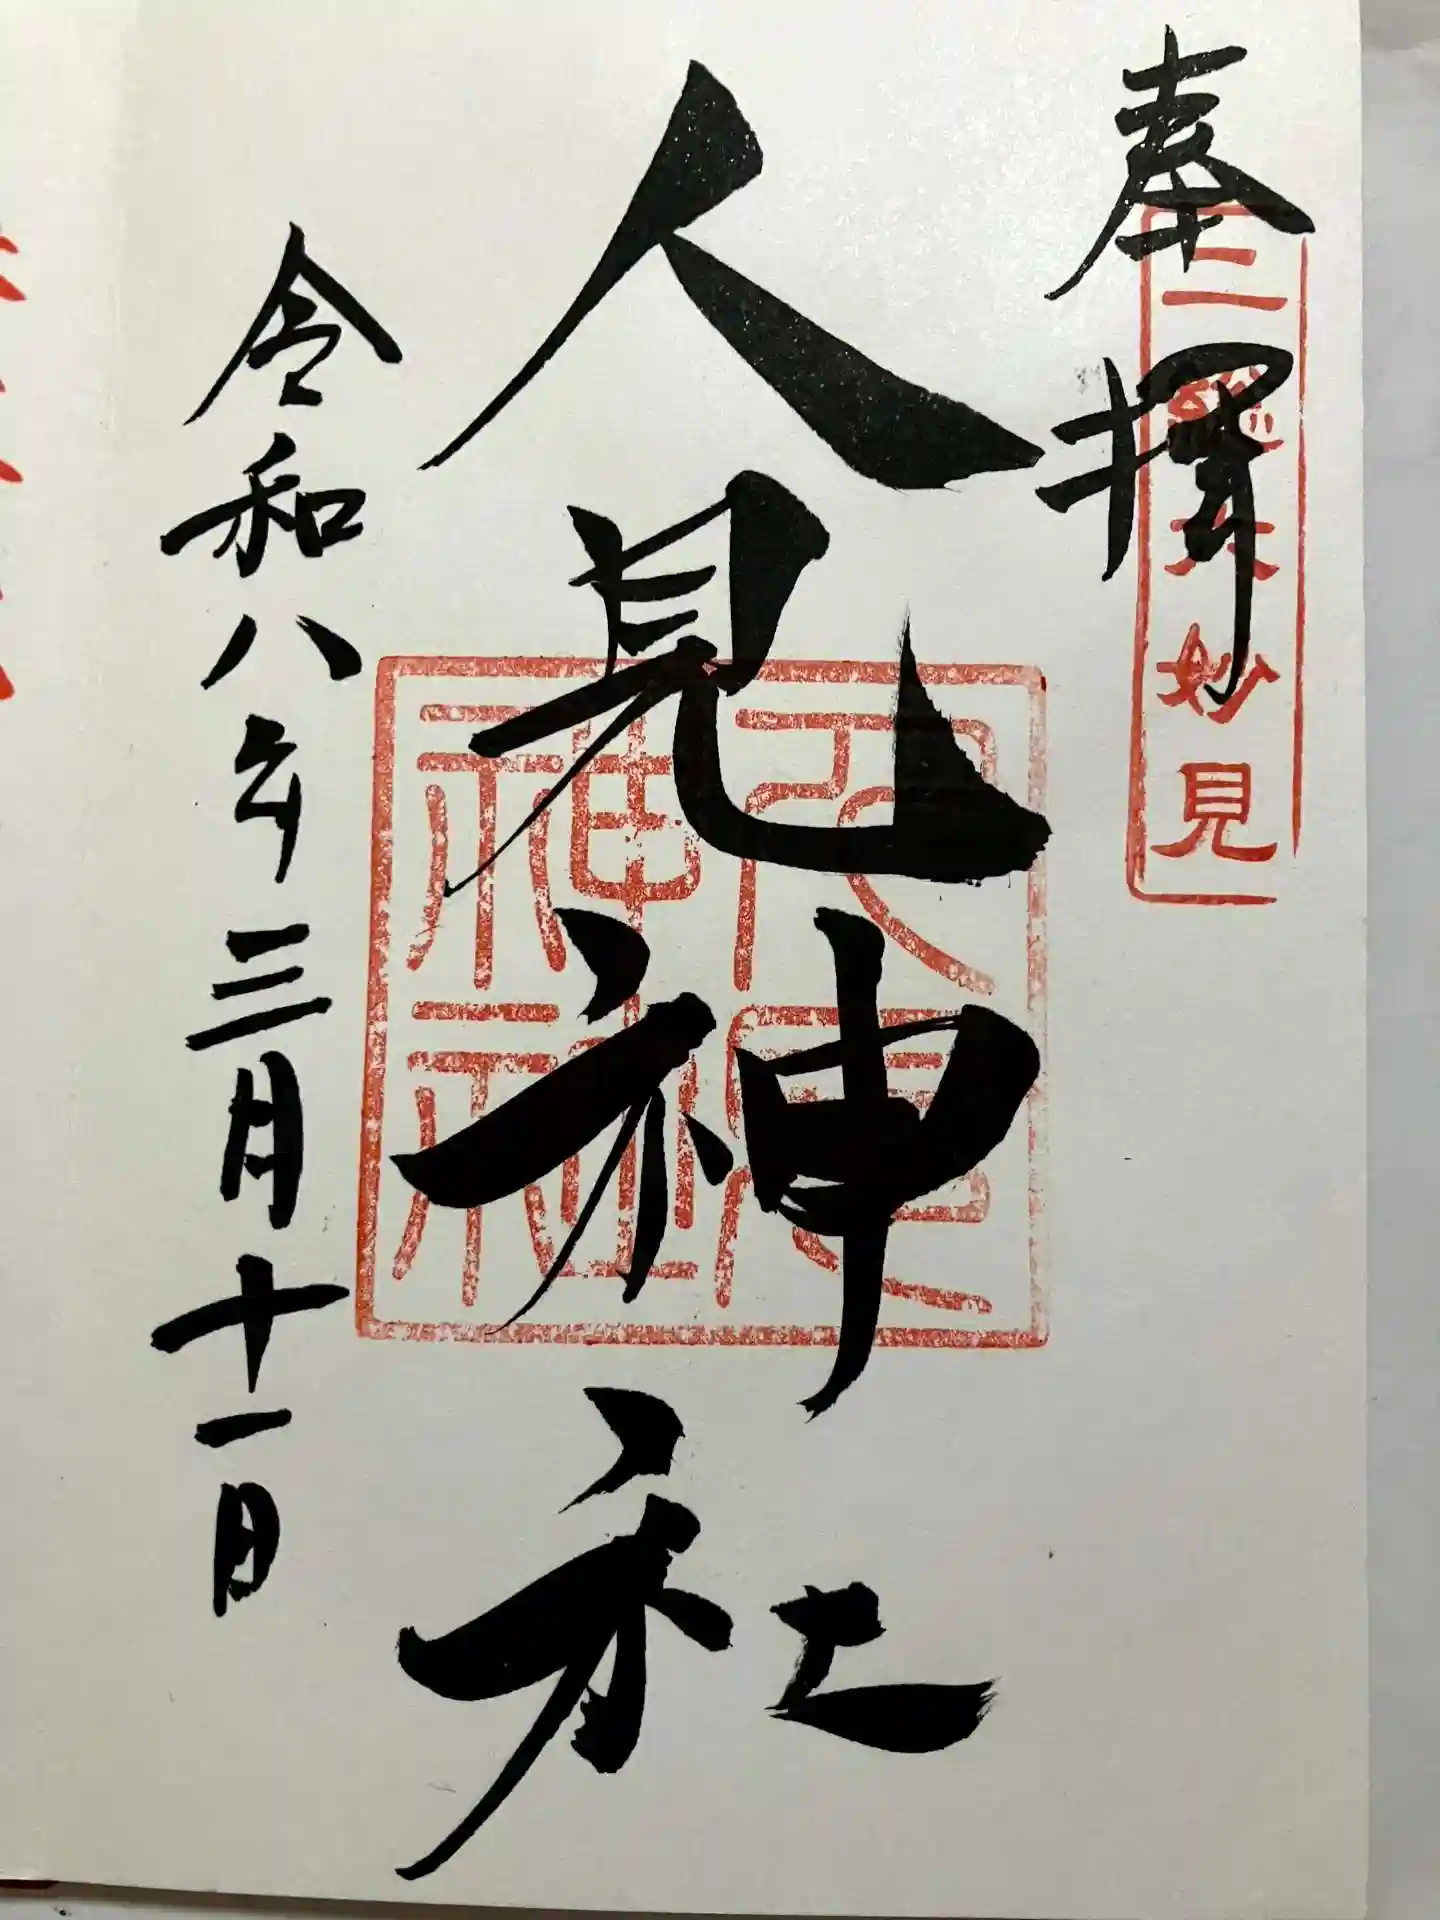 奉拝
妙見
人見神社
神社
令和八年三月十一日